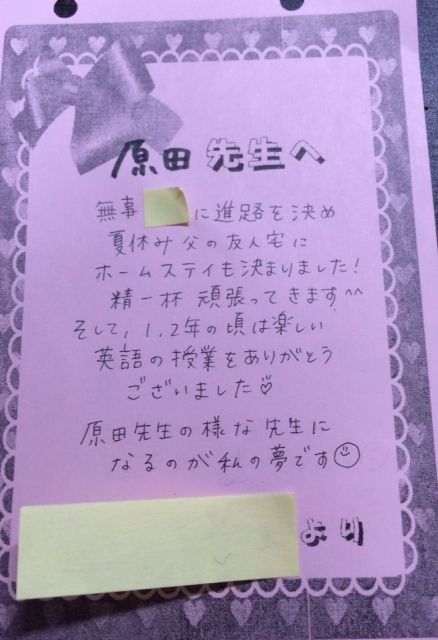 原田 先生へ
無事 に進路を決め
夏休み父の友人宅に
ホームステイも決まりました!
精一杯 頑張ってきます^^
そして, 1,2年の頃は楽しい
英語の授業をありがとう
ございました♡
原田先生の様な先生に
なるのが私の夢です☺
より